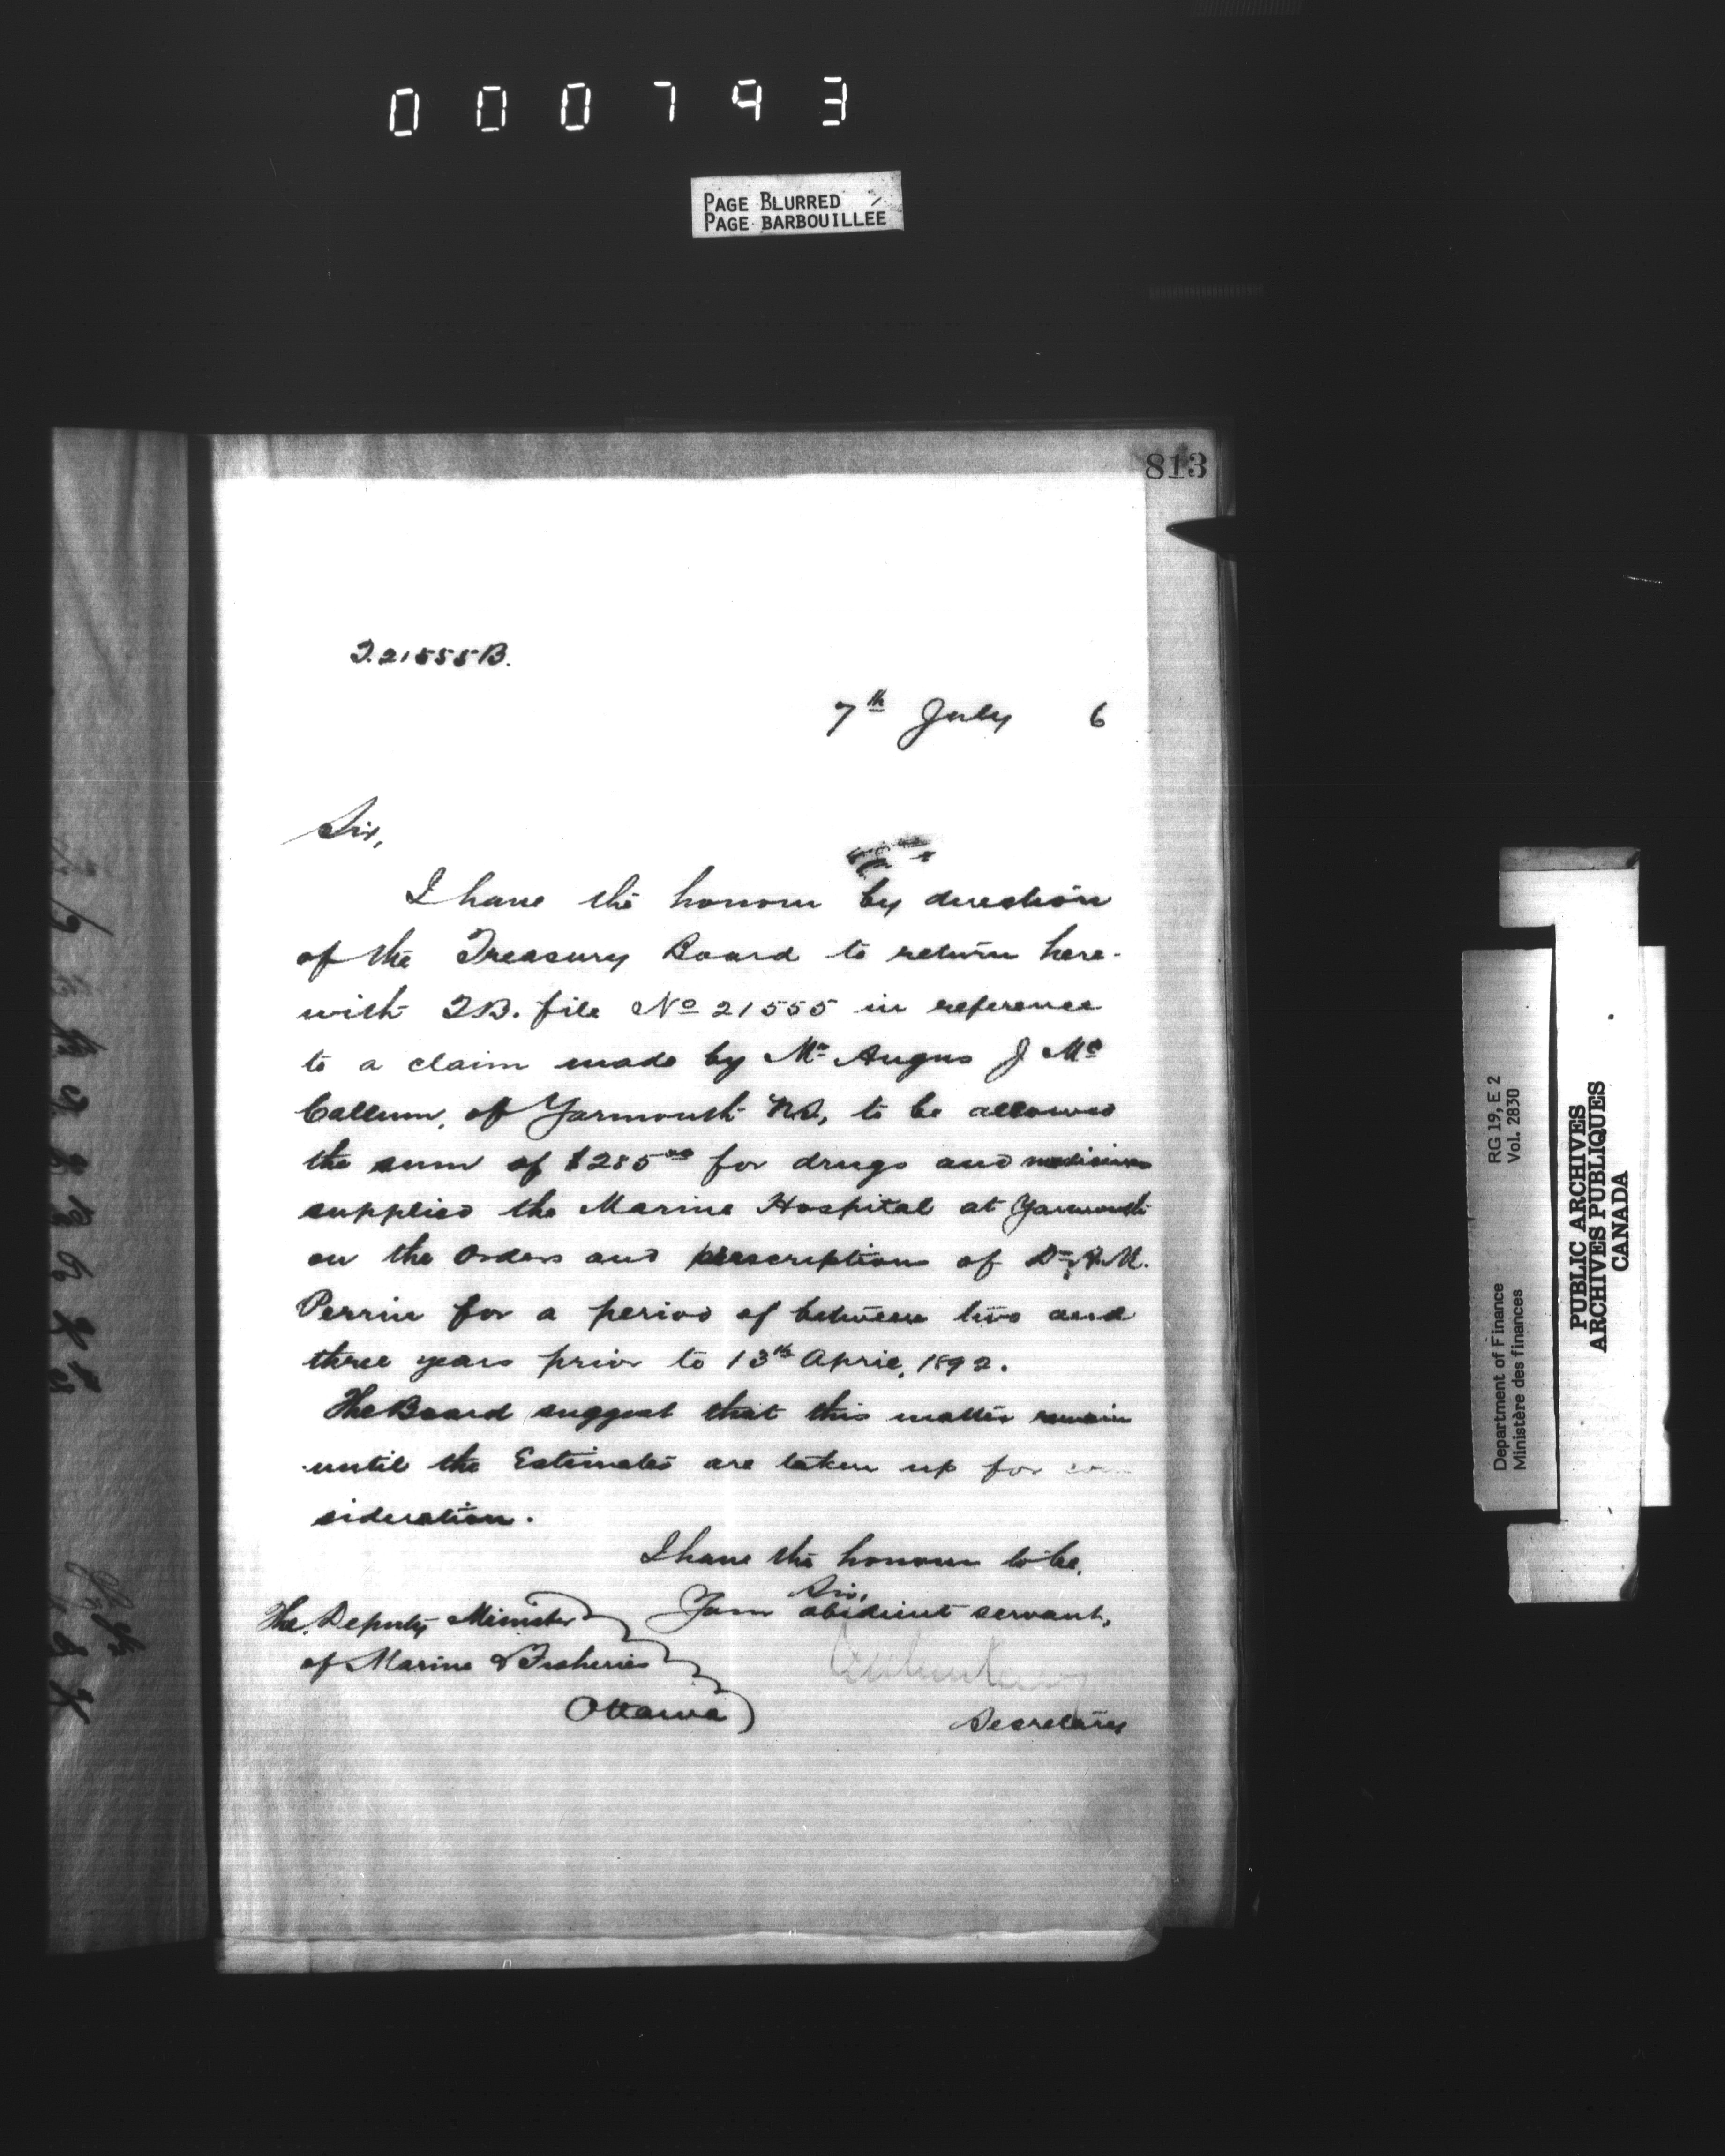 000793
PAGE BLURRED
PAGE BARBOUILLEE
813
T.21555B.
7th July 6
Sir,
I have the honour by direction
of the Treasury Board to return here-
with T.B. file No 21555 in reference
to a claim made by Mr Angus J Mc
Callum, of Yarmouth N.S, to be allowed
the sum of $285 00 for drugs and medicines
supplied the Marine Hospital at Yarmouth
on the orders and prescriptions of Dr A.M.
Perrin for a period of between two and
three years prior to 13th April, 1892.
The Board suggest that this matter remain
until the Estimates are taken up for con
sideration.
I have the honour to be,
Sir,
Your obedient servant,
The Deputy Minister
of Marine & Fisheries
Ottawa
Secretary
Department of Finance RG 19, E 2
Ministère des finances Vol. 2830
PUBLIC ARCHIVES
ARCHIVES PUBLIQUES
CANADA